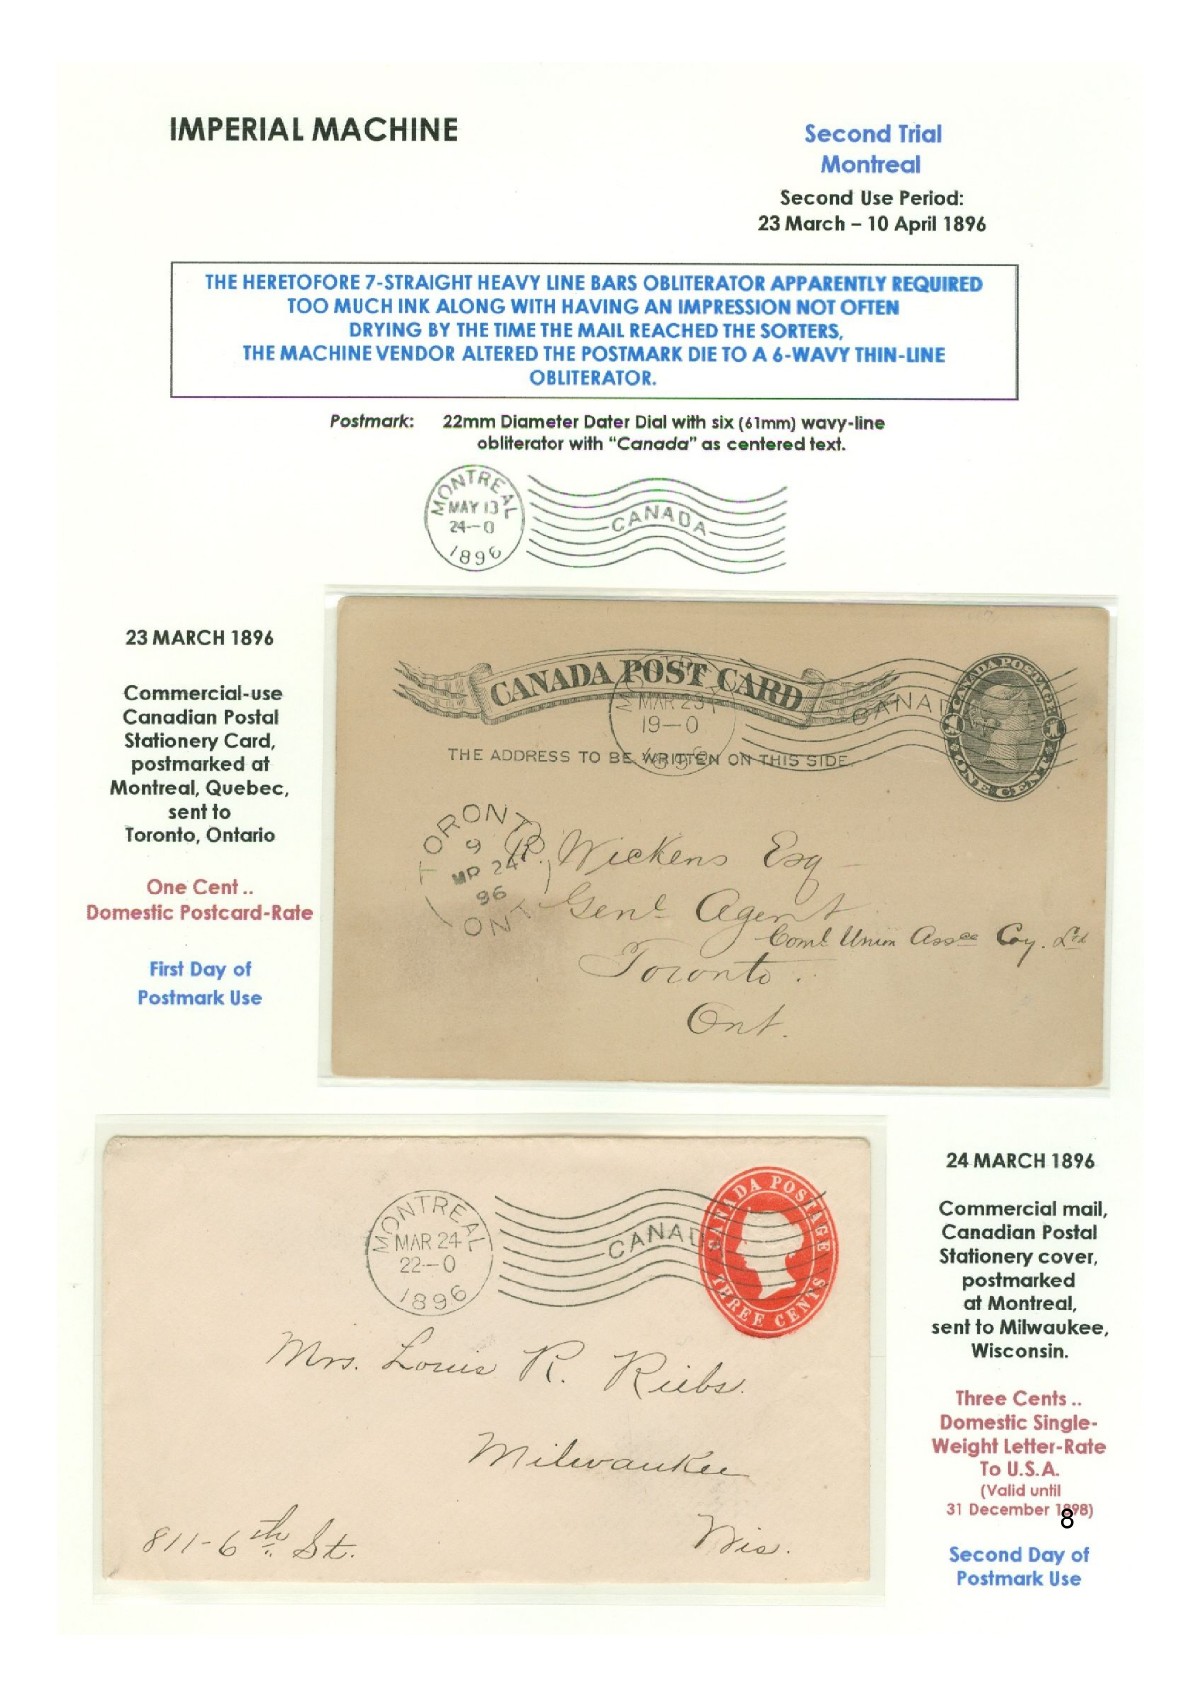 IMPERIAL MACHINE
Second Trial
Montreal
Second Use Period:
23 March – 10 April 1896
THE HERETOFORE 7-STRAIGHT HEAVY LINE BARS OBLITERATOR APPARENTLY REQUIRED
TOO MUCH INK ALONG WITH HAVING AN IMPRESSION NOT OFTEN
DRYING BY THE TIME THE MAIL REACHED THE SORTERS,
THE MACHINE VENDOR ALTERED THE POSTMARK DIE TO A 6-WAVY THIN-LINE
OBLITERATOR.
Postmark: 22mm Diameter Dater Dial with six (61mm) wavy-line
obliterator with “Canada” as centered text.
MONTREAL
MAY 13
24–0
1896
CANADA
23 MARCH 1896
Commercial-use
Canadian Postal
Stationery Card,
postmarked at
Montreal, Quebec,
sent to
Toronto, Ontario
One Cent ..
Domestic Postcard-Rate
First Day of
Postmark Use
CANADA POST CARD
THE ADDRESS TO BE WRITTEN ON THIS SIDE.
MAR 23
19–0
CANADA
CANADA POSTAGE
ONE CENT
TORONTO
9
MR 24
96
ONT
R. Wickens Esq
Genl Agent
Coml Union Assce Coy. Ltd
Toronto.
Ont.
MONTREAL
MAR 24
22–0
1896
CANADA
CANADA POSTAGE
THREE CENTS
Mrs. Louis R. Riebs.
Milwaukee
811-6th. St.
Wis.
24 MARCH 1896
Commercial mail,
Canadian Postal
Stationery cover,
postmarked
at Montreal,
sent to Milwaukee,
Wisconsin.
Three Cents ..
Domestic Single-
Weight Letter-Rate
To U.S.A.
(Valid until
31 December 1898)
8
Second Day of
Postmark Use